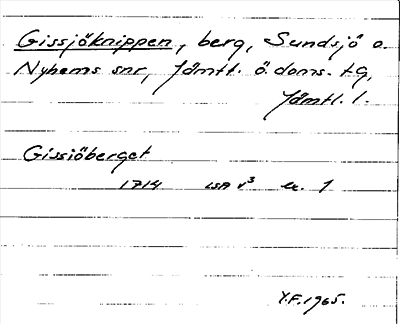 Gissjöknippen, berg, Sundsjö o.
Nyhems snr, Jämtl. ö. doms. tg,
Jämtl. l.
Gissiöberget
1714 LSA v³ 1
Y.F. 1965.